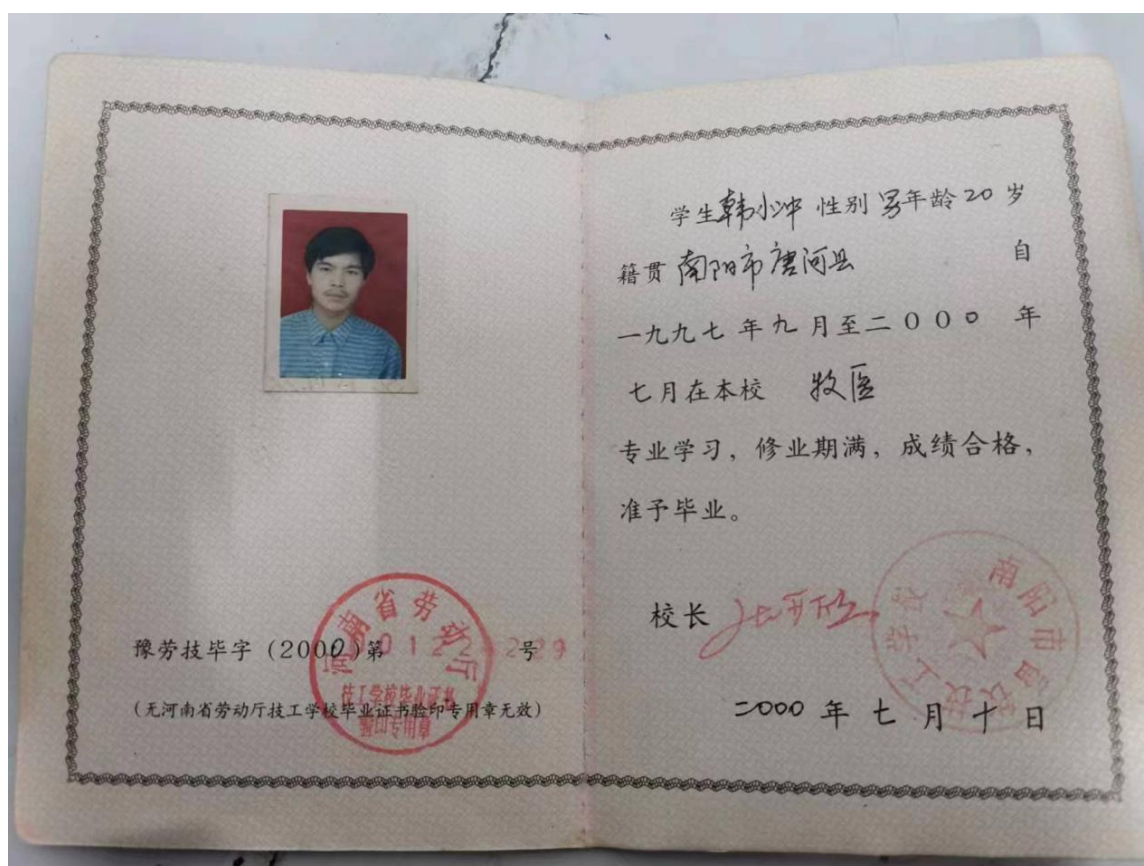 豫劳技毕字(2000)第 号
(无河南省劳动厅技工学校毕业证书验印专用章无效)
河南省劳动厅
技工学校毕业证书
验印专用章
学生韩小冲 性别 男年龄20岁
籍贯 南阳市唐河县 自
一九九七年九月至二000年
七月在本校 牧医
专业学习，修业期满，成绩合格，
准予毕业。
校长
二000年七月十日